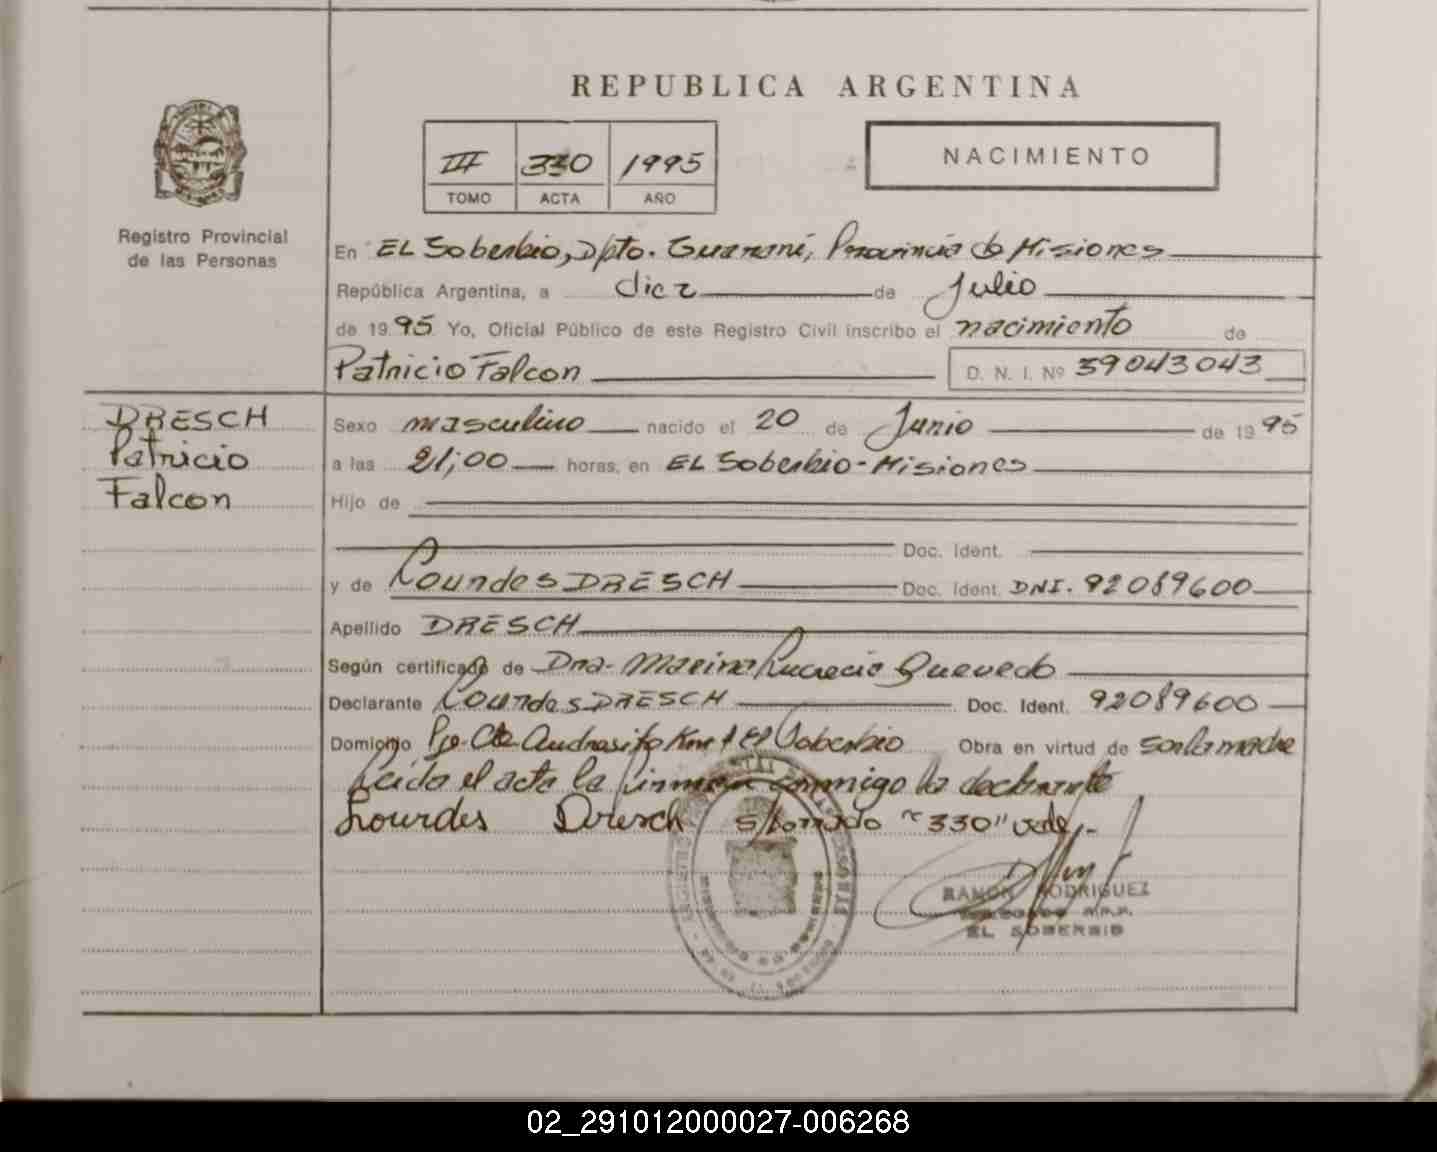 REPUBLICA ARGENTINA
III 330 1995
TOMO ACTA AÑO
NACIMIENTO
Registro Provincial
de las Personas
En EL Soberbio, Dpto. Guaraní, Provincia de Misiones
República Argentina, a diez de Julio
de 1995 Yo, Oficial Público de este Registro Civil inscribo el nacimiento de
Patricio Falcon D. N. I. Nº 39043043
DRESCH
Patricio
Falcon
Sexo masculino nacido el 20 de Junio de 1995
a las 21,00 horas, en EL Soberbio-Misiones
Hijo de
Doc. Ident.
y de Lourdes DRESCH Doc. Ident. DNI. 92089600
Apellido DRESCH
Según certificado de Dña. Marina Lucrecia Quevedo
Declarante Lourdes DRESCH Doc. Ident. 92089600
Domicilio Pje. Andresito El Soberbio Obra en virtud de ser la madre
Leida el acta la firma conmigo la declarante
Lourdes Dresch s/borrado "330" vale.-
RAMON RODRIGUEZ
EL SOBERBIO
02_291012000027-006268